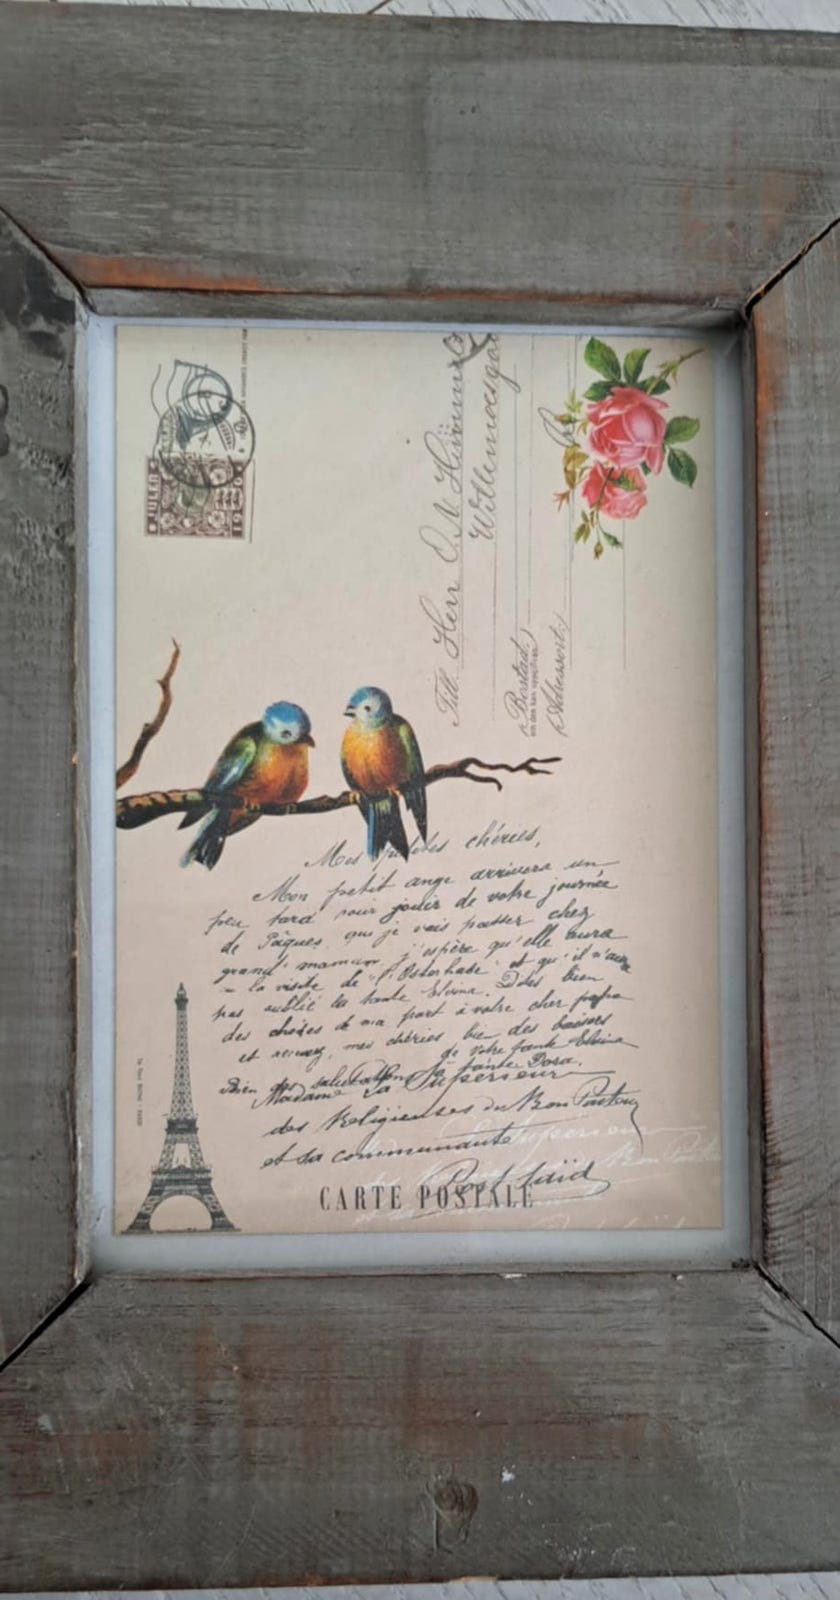 JULEN 1946
Till Herr O. N.
Bostad:
Adressort:
Mes petites chéries,
Mon petit ange arrivera un
peu tard pour jouir de votre journée
de Pâques, que je vais passer chez
grand'maman, j'espère qu'elle aura
la visite de "l'Osterhase" et qu'il n'aura
pas oublié la tante Elvina. Dites bien
des choses de ma part à votre cher papa
et recevez, mes chéries bien des baisers
de votre tante Elvina
Bien des salutations de tante Dora.
Madame la Supérieure
des Religieuses du Bon Pasteur
et sa communauté
CARTE POSTALE